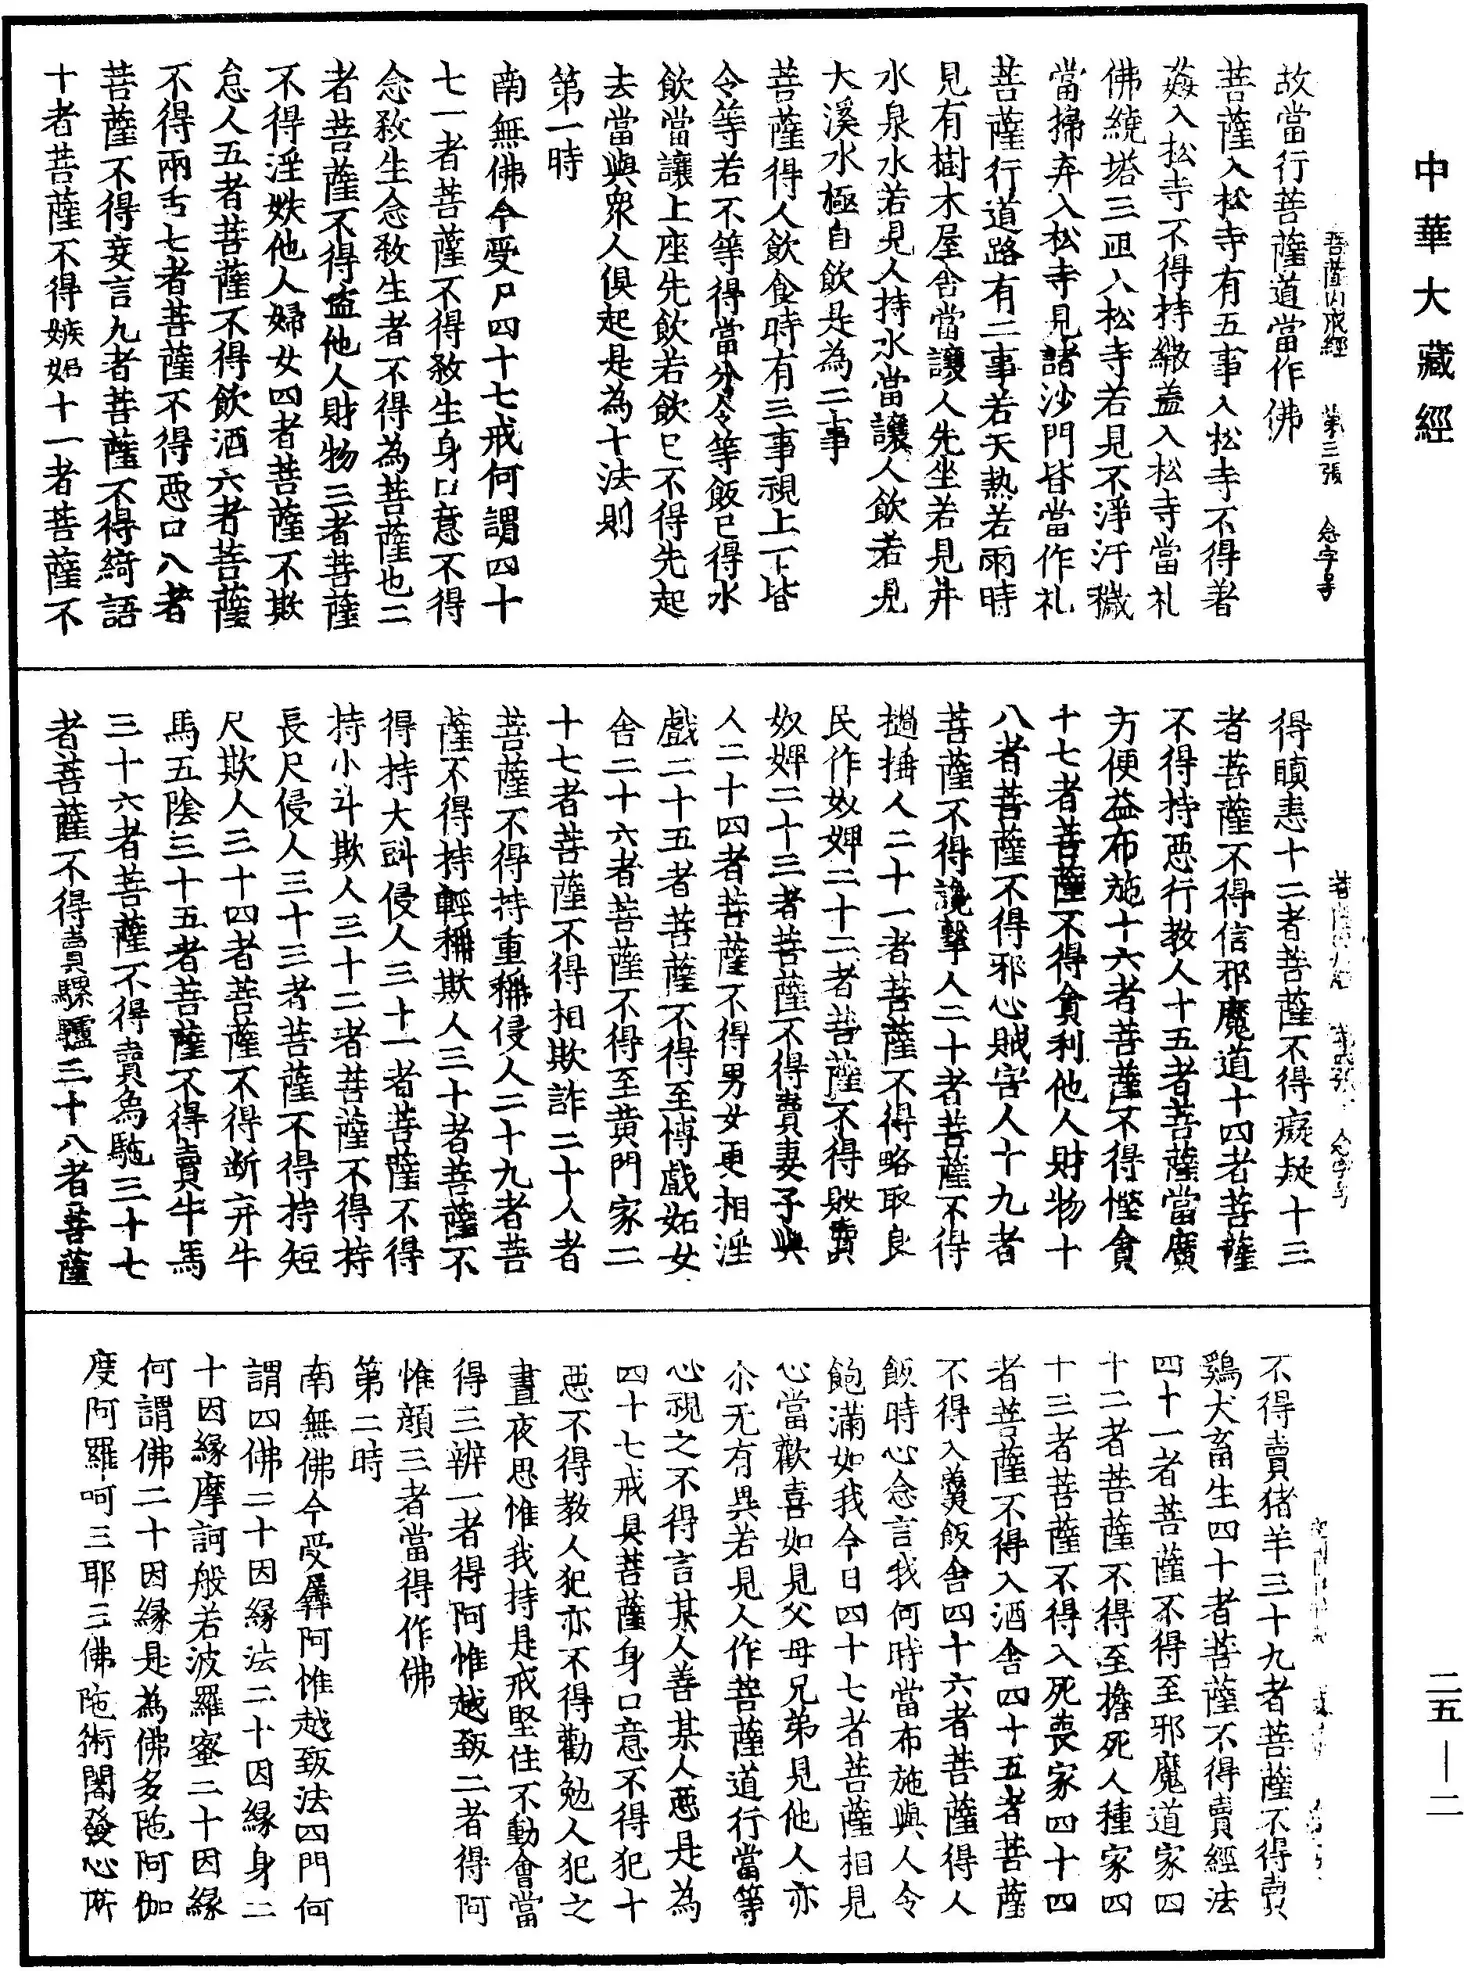 中華大藏經
菩薩內戒經 第三張 念字号
故當行菩薩道當作佛
菩薩入松寺有五事入松寺不得著
姦入松寺不得持繖盖入松寺當礼
佛繞塔三匝入松寺若見不淨汙穢
當掃弃入松寺見諸沙門皆當作礼
菩薩行道路有二事若天熱若雨時
見有樹木屋舍當讓人先坐若見井
水泉水若見人持水當讓人飲若見
大溪水極自飲是為二事
菩薩得人飲食時有三事視上下皆
令等若不等得當分令等飯已得水
飲當讓上座先飲若飲已不得先起
去當與眾人俱起是為十法則
第一時
南無佛今受尸四十七戒何謂四十
七一者菩薩不得殺生身口意不得
念殺生念殺生者不得為菩薩也二
者菩薩不得盜他人財物三者菩薩
不得淫妷他人婦女四者菩薩不欺
怠人五者菩薩不得飲酒六者菩薩
不得兩舌七者菩薩不得惡口八者
菩薩不得妄言九者菩薩不得綺語
十者菩薩不得嫉妬十一者菩薩不
得瞋恚十二者菩薩不得癡疑十三
者菩薩不得信邪魔道十四者菩薩
不得持惡行教人十五者菩薩當廣
方便益布施十六者菩薩不得慳貪
十七者菩薩不得貪利他人財物十
八者菩薩不得邪心賊害人十九者
菩薩不得讒擊人二十者菩薩不得
撾捶人二十一者菩薩不得略取良
民作奴婢二十二者菩薩不得販賣
奴婢二十三者菩薩不得賣妻子與
人二十四者菩薩不得男女更相淫
戲二十五者菩薩不得至博戲妬女
舍二十六者菩薩不得至黄門家二
十七者菩薩不得相欺詐二十八者
菩薩不得持重稱侵人二十九者菩
薩不得持輕稱欺人三十者菩薩不
得持大㪷侵人三十一者菩薩不得
持小斗欺人三十二者菩薩不得持
長尺侵人三十三者菩薩不得持短
尺欺人三十四者菩薩不得断弃牛
馬五陰三十五者菩薩不得賣牛馬
三十六者菩薩不得賣為馳三十七
者菩薩不得賣騾驢三十八者菩薩
不得賣猪羊三十九者菩薩不得賣
鷄犬畜生四十者菩薩不得賣經法
四十一者菩薩不得至邪魔道家四
十二者菩薩不得至擔死人種家四
十三者菩薩不得入死喪家四十四
者菩薩不得入酒舍四十五者菩薩
不得入羹飯舍四十六者菩薩得人
飯時心念言我何時當布施與人令
飽滿如我今日四十七者菩薩相見
心當歡喜如見父母兄弟見他人亦
尒无有異若見人作菩薩道行當等
心視之不得言某人善某人惡是為
四十七戒具菩薩身口意不得犯十
惡不得教人犯亦不得勸勉人犯之
晝夜思惟我持是戒堅住不動會當
得三辨一者得阿惟越致二者得阿
惟顔三者當得作佛
第二時
南無佛今受羼阿惟越致法四門何
謂四佛二十因緣法二十因緣身二
十因緣摩訶般若波羅蜜二十因緣
何謂佛二十因緣是為佛多陁阿伽
度阿羅呵三耶三佛陁術闍發心所
二五—二